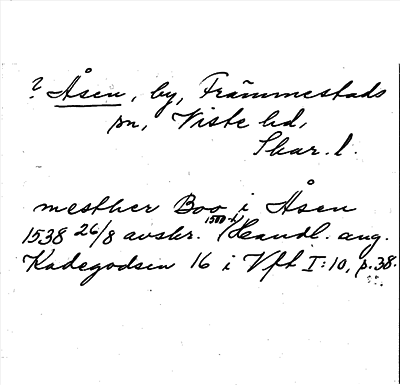 ? Åsen, by, Främmestads
sn, Viste hd,
Skar. l.
mesther Boo i Åsen
1538 26/8 avskr. 1500-t. (Handl. ang.
Kadegodsen 16 i Vft I:10, p. 38.